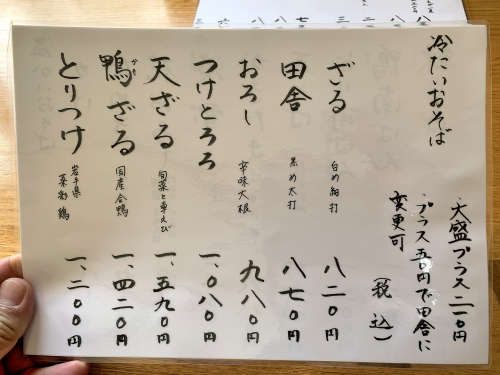 冷たいおそば
・大盛プラス二一〇円
・プラス五〇円で田舎に
変更可
(税込)
ざる 白め細打 八二〇円
田舎 黒め太打 八七〇円
おろし 辛味大根 九八〇円
つけとろろ 一、〇八〇円
天ざる 旬菜と車えび 一、五九〇円
鴨ざる 国産合鴨 一、四二〇円
かも
とりつけ 岩手県 菜彩鶏 一、二〇〇円